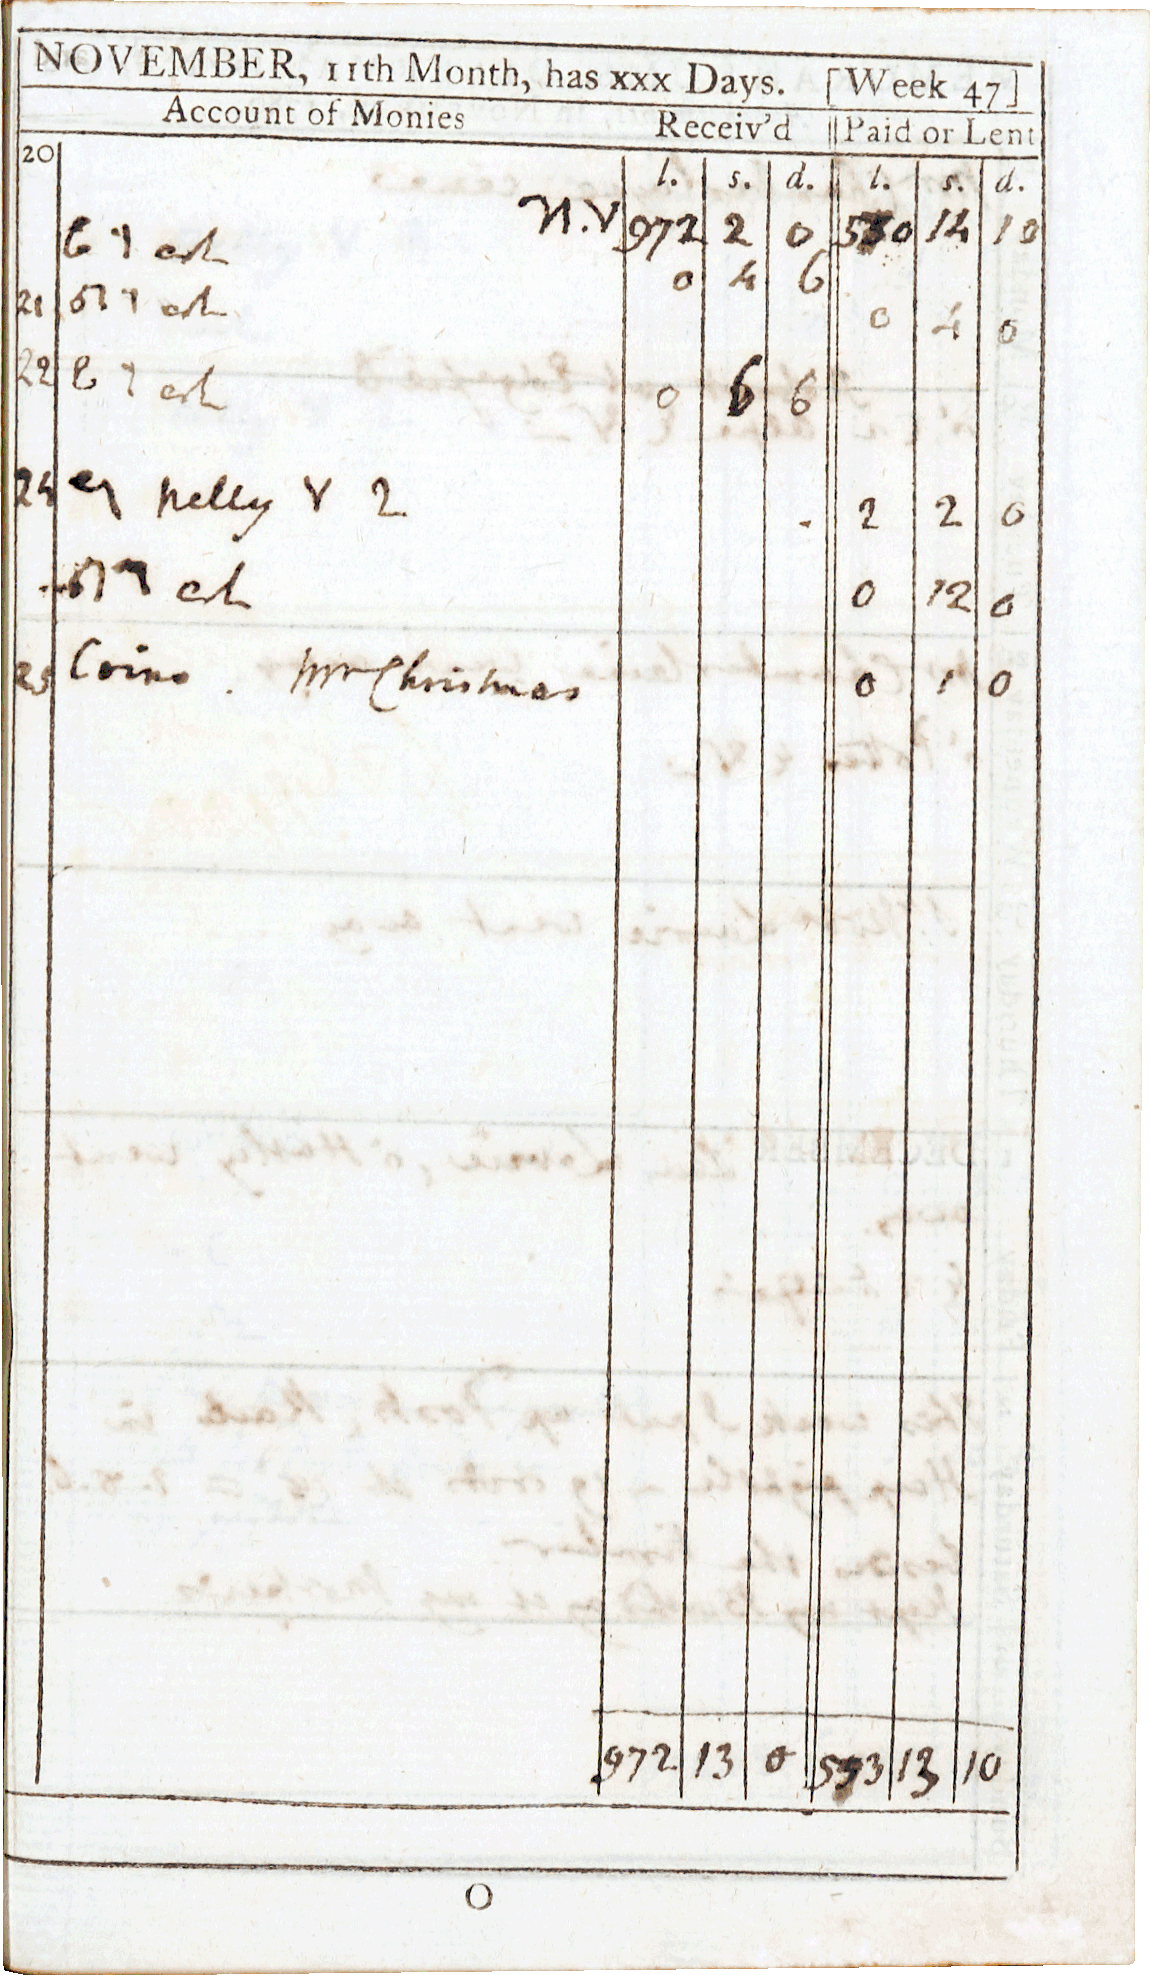 NOVEMBER, 11th Month, has xxx Days. [Week 47]
Account of Monies Receiv'd Paid or Lent
20
l. s. d. l. s. d.
N.V 972 2 0 530 14 10
0 4 6
21 0 4 0
22 0 6 6
24 Nelly V 2 2 2 0
0 12 0
25 Coins. Mr Christmas 0 1 0
972 13 0 533 13 10
O